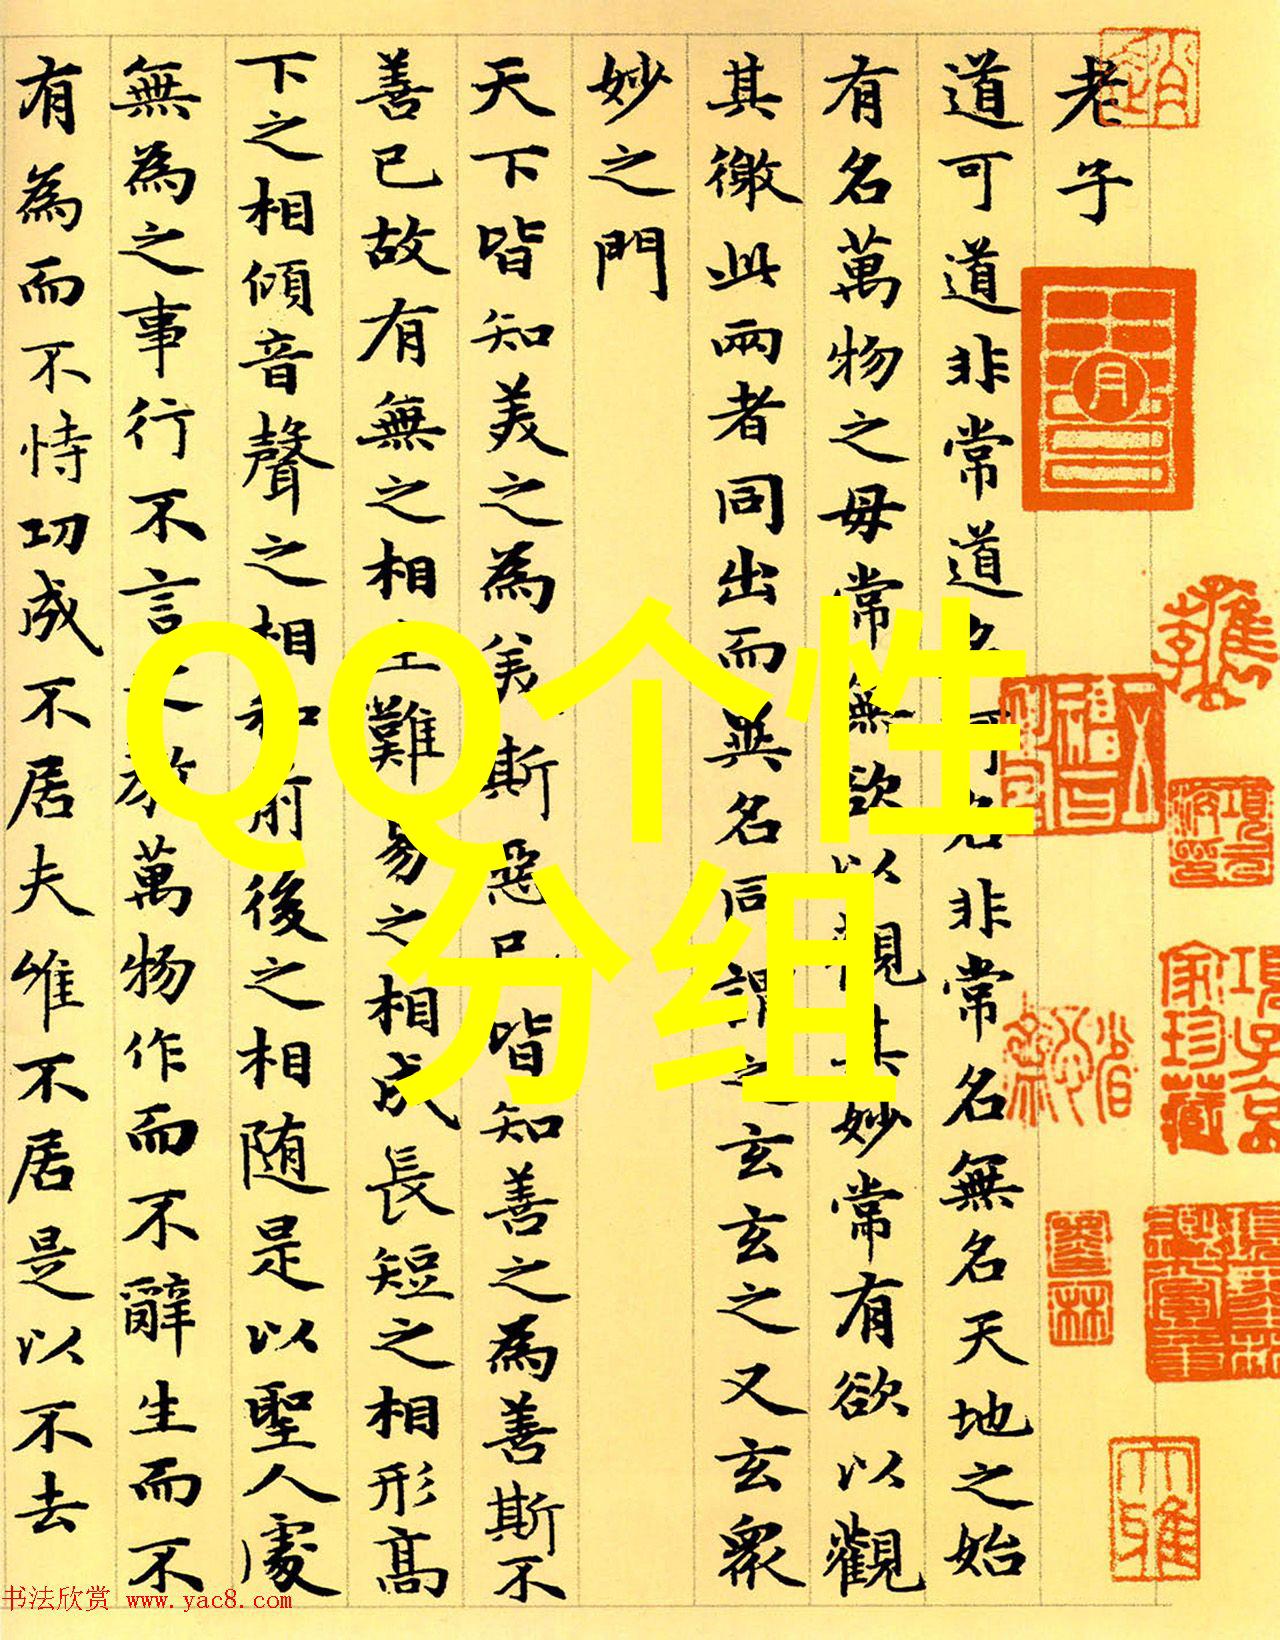 老子
道可道非常道名可名非常名無名天地之始
有名萬物之母常無欲以觀其妙常有欲以觀
其徼此兩者同出而異名同謂之玄玄之又玄眾
妙之門
天下皆知美之為美斯惡已皆知善之為善斯不
善已故有無之相生難易之相成長短之相形高
下之相傾音聲之相和前後之相随是以聖人處
無為之事行不言之教萬物作而不辭生而不
有為而不恃功成不居夫唯不居是以不去
QQ个性
分组
书法欣赏 www.yac8.com